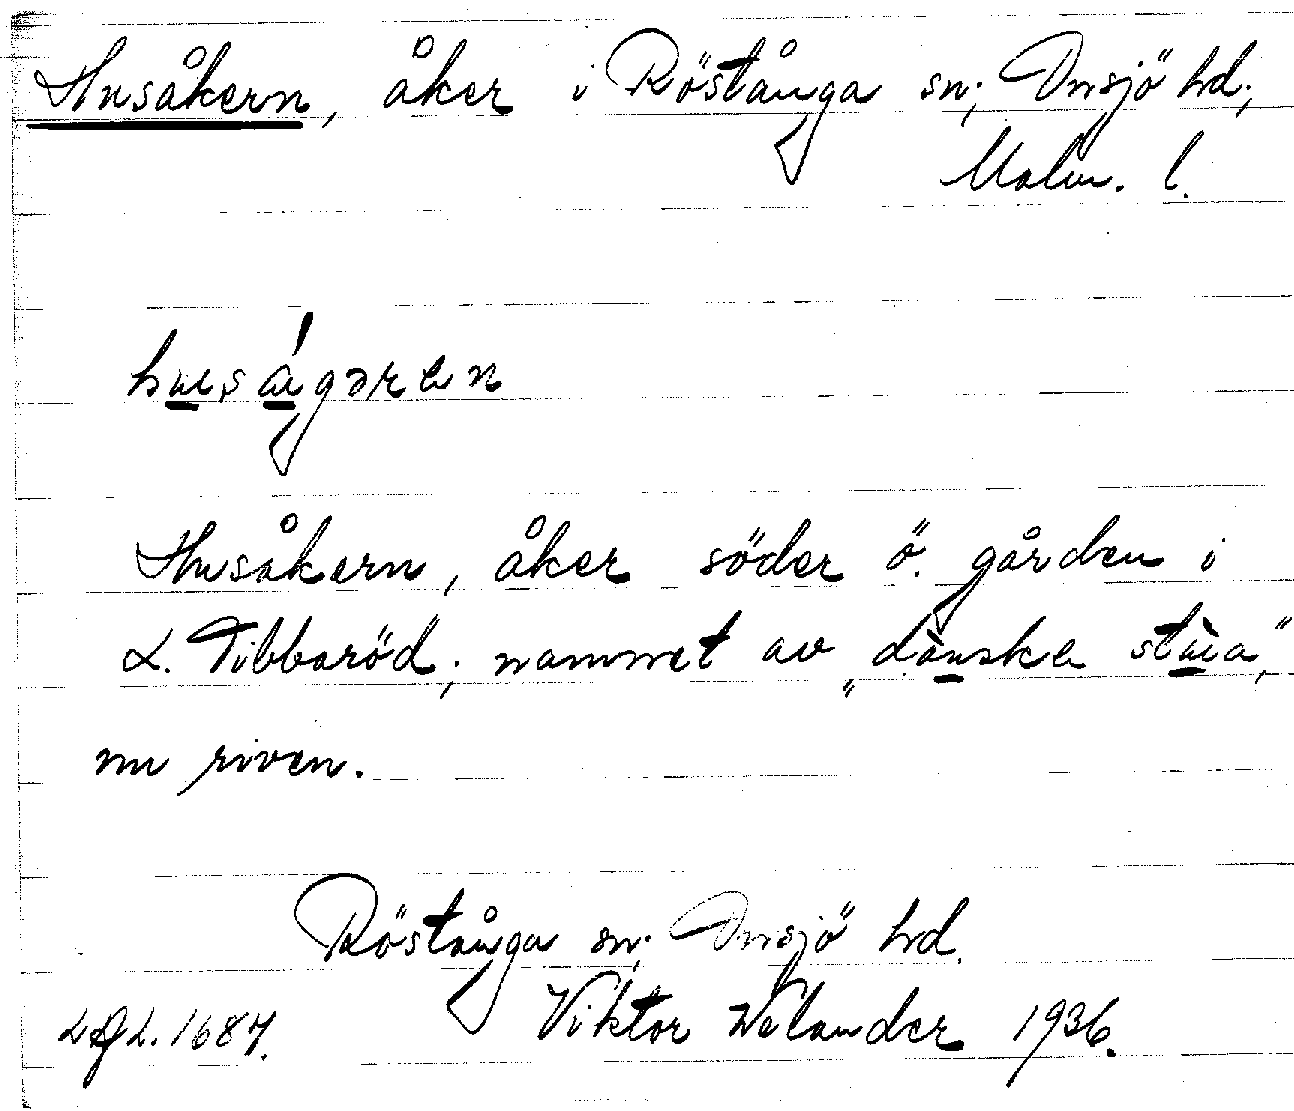 Husåkern, åker i Röstånga sn; Onsjö hd;
Malm. l.
husågəren
Husåkern, åker söder ö. gården i
L. Tibbaröd; nammet av „dànska stùa",
nu riven.
Röstånga sn; Onsjö hd.
Viktor Welander 1936.